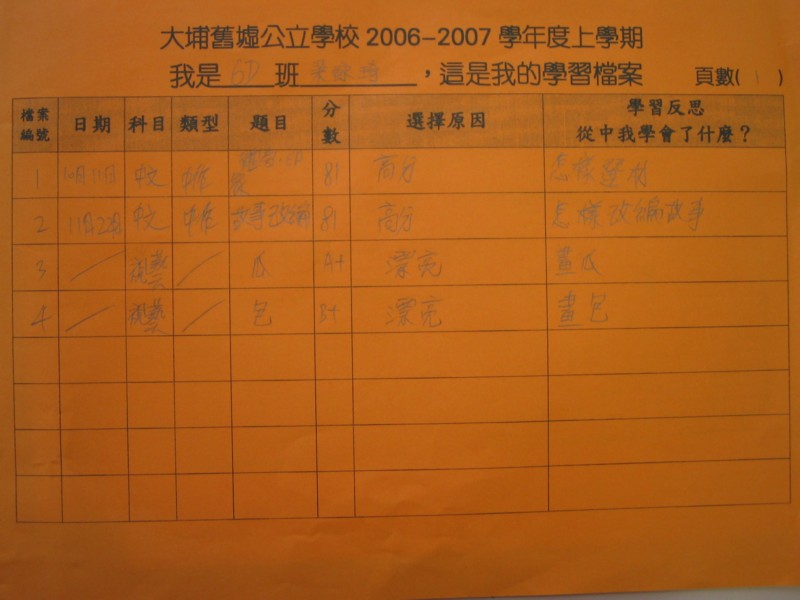 大埔舊墟公立學校 2006-2007 學年度上學期
我是 6D 班 ，這是我的學習檔案 頁數( 1 )
檔案編號 日期 科目 類型 題目 分數 選擇原因 學習反思 從中我學會了什麼？
1 10月11日 中文 中作 81 高分 怎樣
2 11月2日 中文 中作 故事改編 81 高分 怎樣改編故事
3 ／ 視藝 ／ 瓜 A+ 漂亮 畫瓜
4 ／ 視藝 ／ 包 B+ 漂亮 畫包